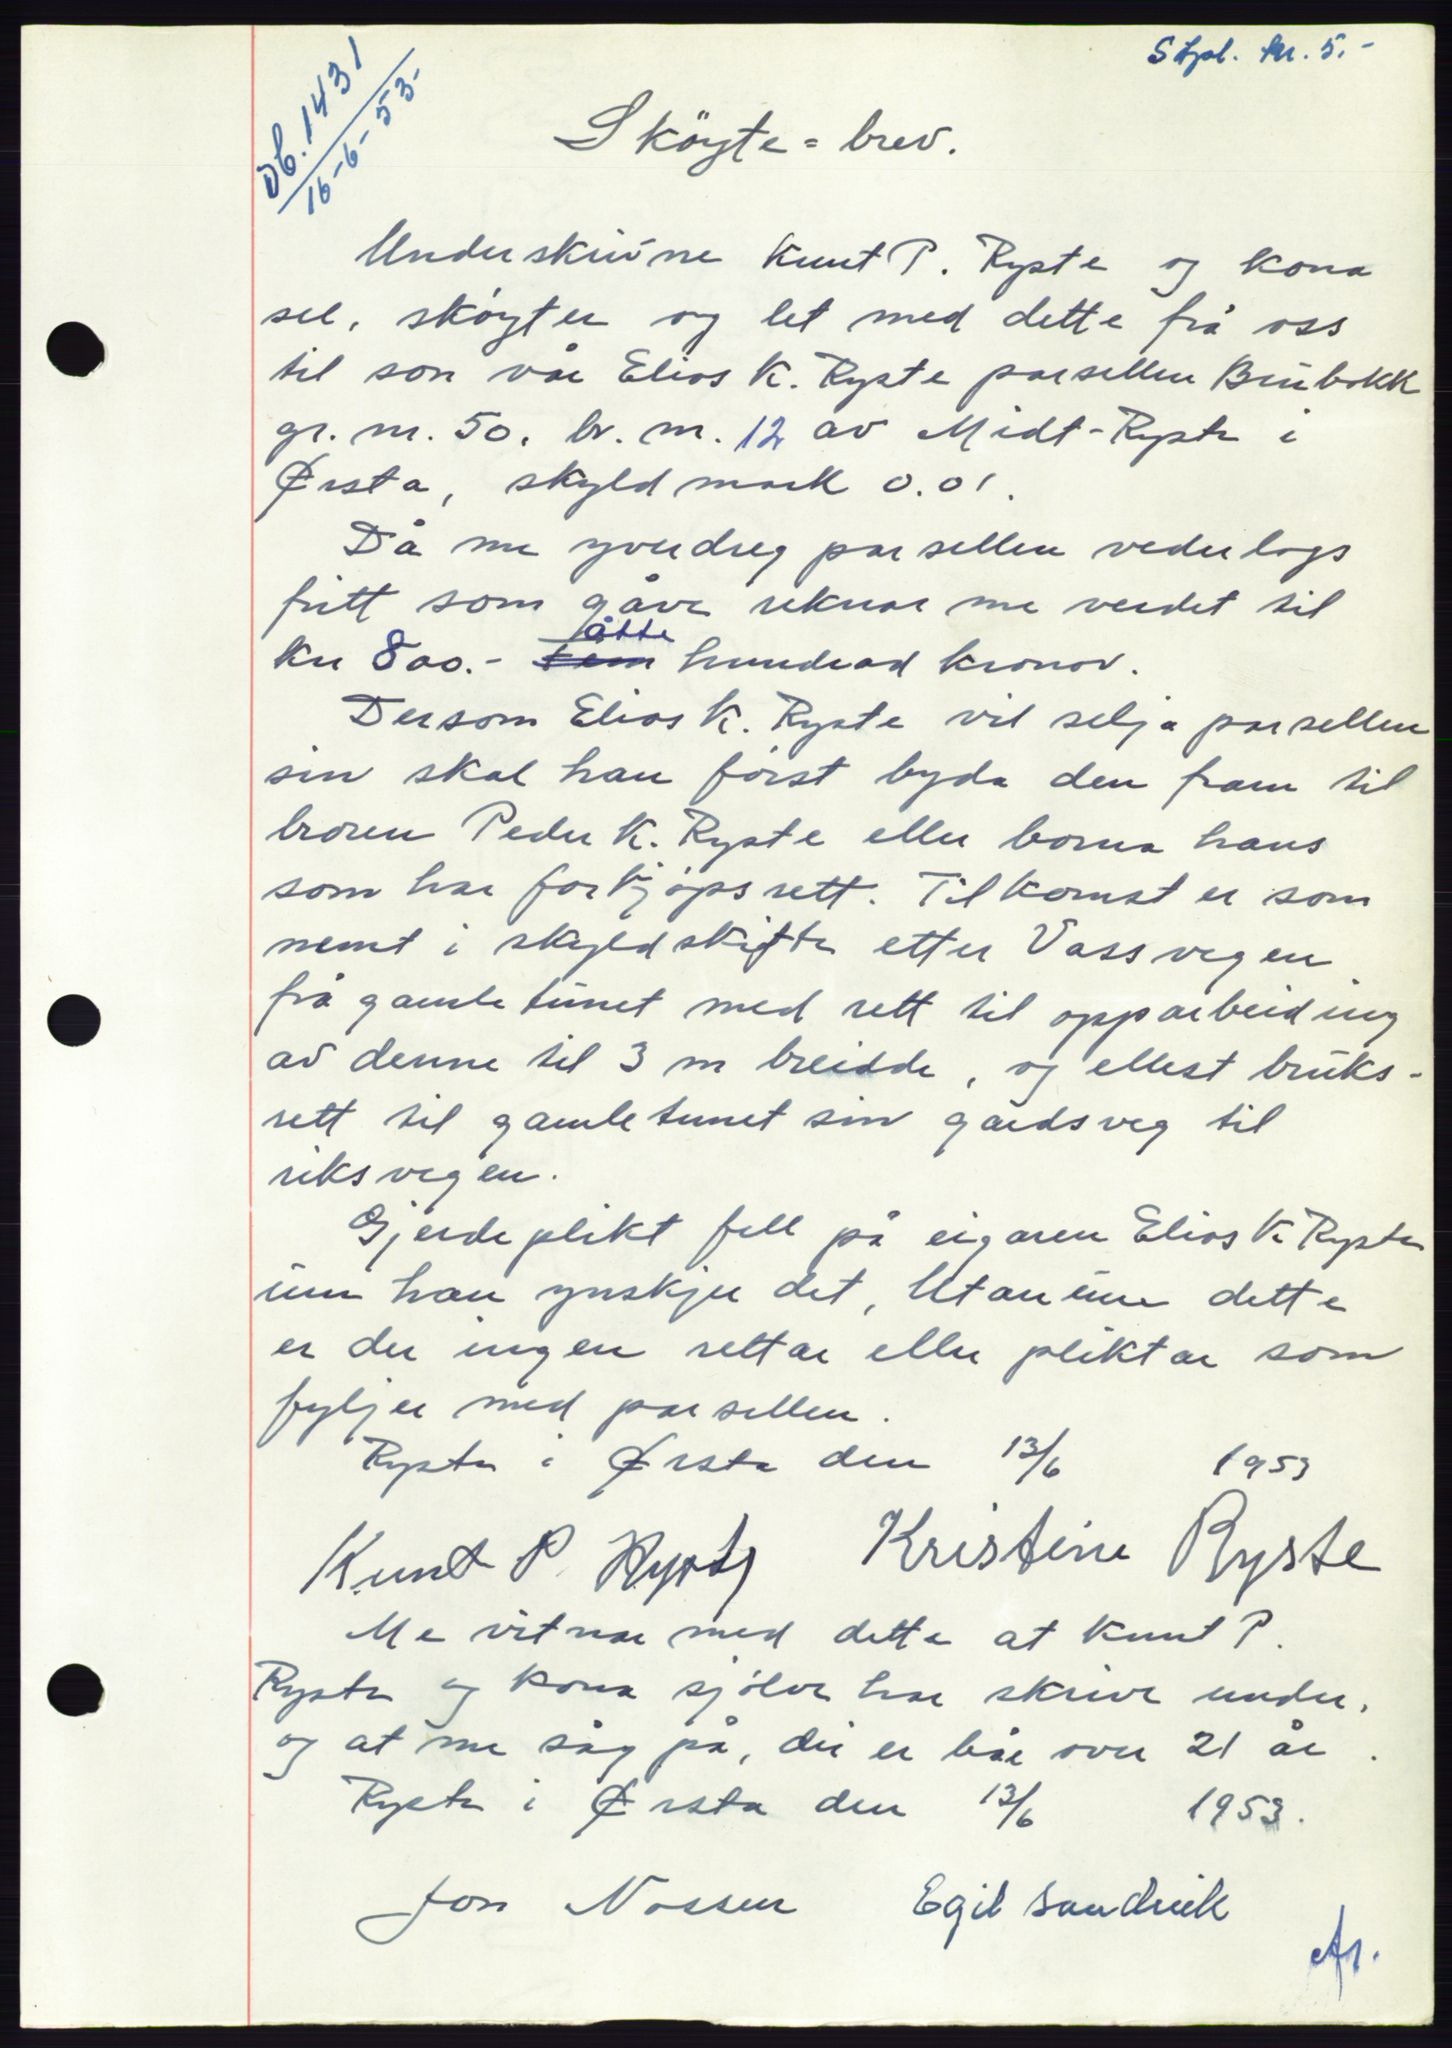 Stpl. kr. 5.-
Db. 1431
16-6-53-
Sköyte = brev.
Underskrivne Knut P. Ryste og kona
sel, skøyter og let med dette frå oss
til son vår Elias K. Ryste parsellen Brúbakk
gr. nr. 50, br. nr. 12 av Midt-Ryste i
Ørsta, skyld mark 0.01.
Då me yverdreg parsellen vederlags
fritt som gåve reknar me verdet til
åtte
kr 800.- fem hundrad kronor.
Dersom Elias K. Ryste vil selja parsellen
sin skal han først byda den fram til
broren Peder K. Ryste eller borna hans
som har forkjøpsrett. Tilkomst er som
nemt i skyldskifte etter Vassvegen
frå gamletúnet med rett til opparbeiding
av denne til 3 m breidde, og ellest brúks-
rett til gamletunet sin gardsveg til
riksvegen.
Gjerdeplikt fell på eigaren Elias K Ryste
um han ynskjer det, Utanúm dette
er der ingen rettar eller pliktar som
fyljer med parsellen.
Ryste i Ørsta den 13/6 1953
Knut P. Ryste Kristine Ryste
Me vitnar med dette at Knut P.
Ryste og kona sjølve har skrive under,
og at me såg på, dei er båe over 21 år.
Ryste i Ørsta den 13/6 1953.
Jon Nossen Egil Sandvik